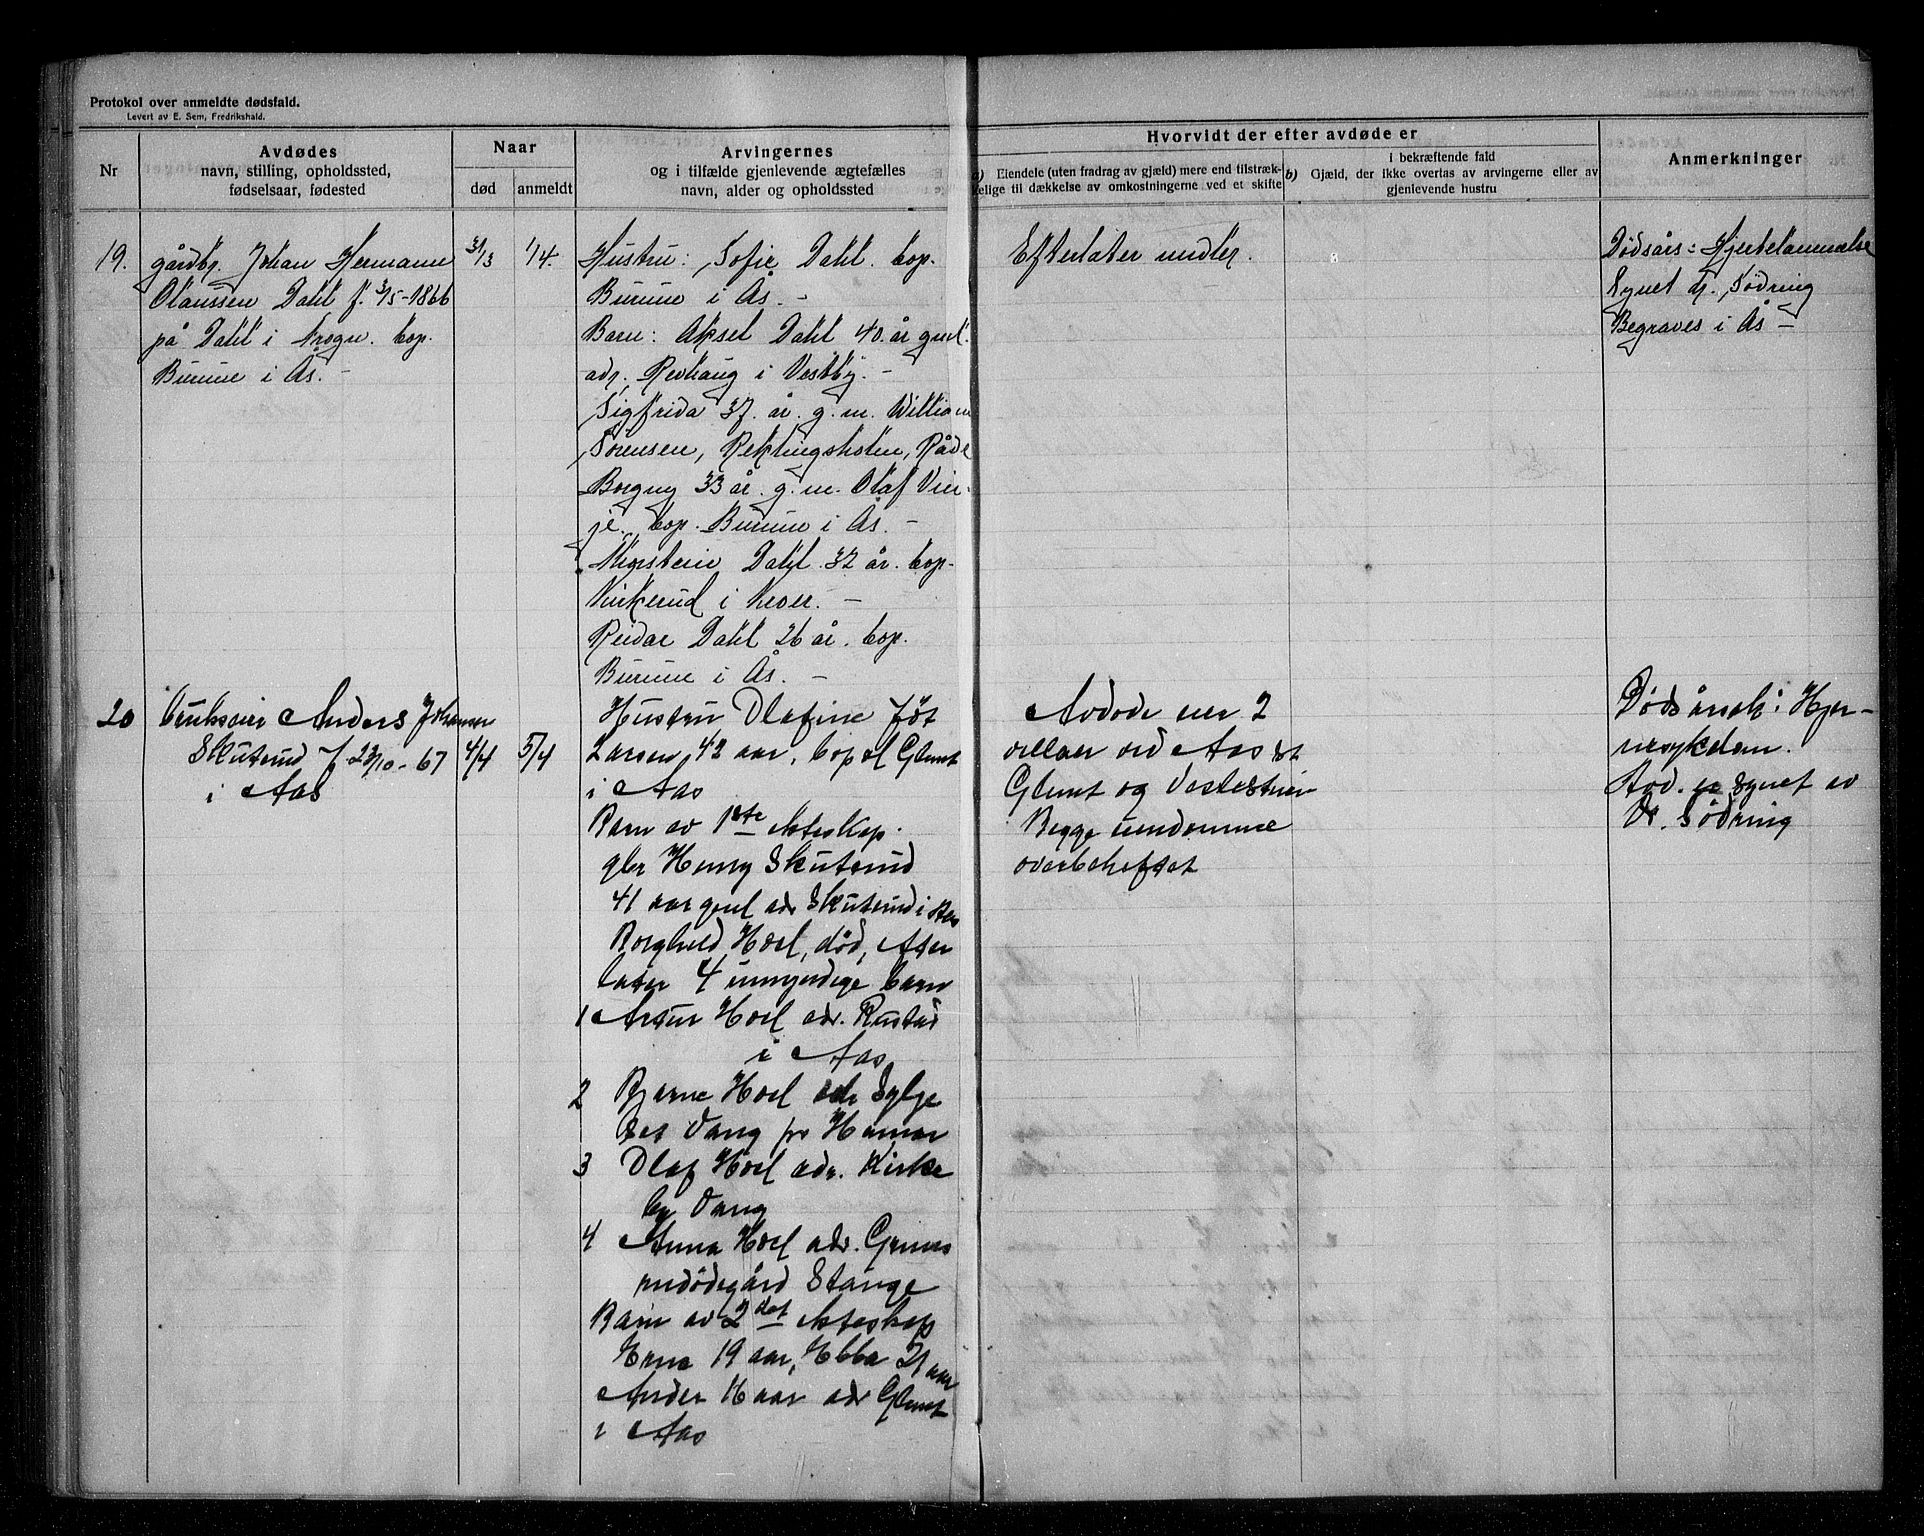 Protokol over anmeldte dødsfald.
Levert av E. Sem, Fredrikshald.
Nr
Avdødes
navn, stilling, opholdssted,
fødselsaar, fødested
Naar
død
anmeldt
Arvingernes
og i tilfælde gjenlevende ægtefælles
navn, alder og opholdssted
Hvorvidt der efter avdøde er
a) Eiendele (uten fradrag av gjæld) mere end tilstræk-
kelige til dækkelse av omkostningerne ved et skifte
I bekræftende fald
b) Gjæld, der ikke overtas av arvingerne eller av
gjenlevende hustru
Anmerkninger
19.
gårdbr. Johan Hermann
Olaussen Dahl f. 3/5-1866
på Dahl i Krogn. bop.
Burum i Ås. -
31/3
1/4.
Hustru: Sofie Dahl. bop.
Burum i Ås. -
Barn: Aksel Dahl 40 år gml.
adr. Revhaug i Vestby. -
Sigfrida 37. år. g. m. William
Sørensen, Rektingsholen, Råde
Borgny 33 år. g. m. Olaf Vier-
je. bop. Burum i Ås. -
Dahl 32 år. bop.
i Kroer. -
Reidar Dahl 26 år. bop.
Burum i Ås. -
Efterlater midler.
Dødsårs: Hjertelammelse
Synet dr. Sødring
Begraves i Ås -
20
Anders Johansen
Skuterud f 23/10-67
i Aas
4/4
5/4
Hustru Olafine föt
Larsen, 42 aar, bopel Glent
i Aas
Barn av 1ste Ekteskap.
gbr Henry Skuterud
41 aar gml adr Skuterud i Aas
Borghild Hoel, død, efter
later 4 umyndige barn
1 Artur Hoel adr. Rustad
i Aas
2 Bjarne Hoel adr Sylje
set Vang pr Hamar
3 Olaf Hoel adr. Kirke
by Vang
4 Anna Hoel adr. Grims
rudødegård Stange
Barn av 2det Ekteskap
Erna 19 aar, Ebba 21 aar
Ander 16 aar adr Glent
i Aas
Avdøde eier 2
villaer ved Aas st
Glent og
Begge eiendomme
overbeheftet
Dødsårsak: Hjer-
nesykdom.
Avd. er synet av
Dr. Södring